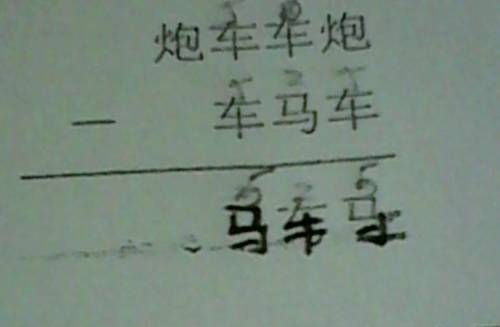 炮车车炮
－ 车马车
马车马